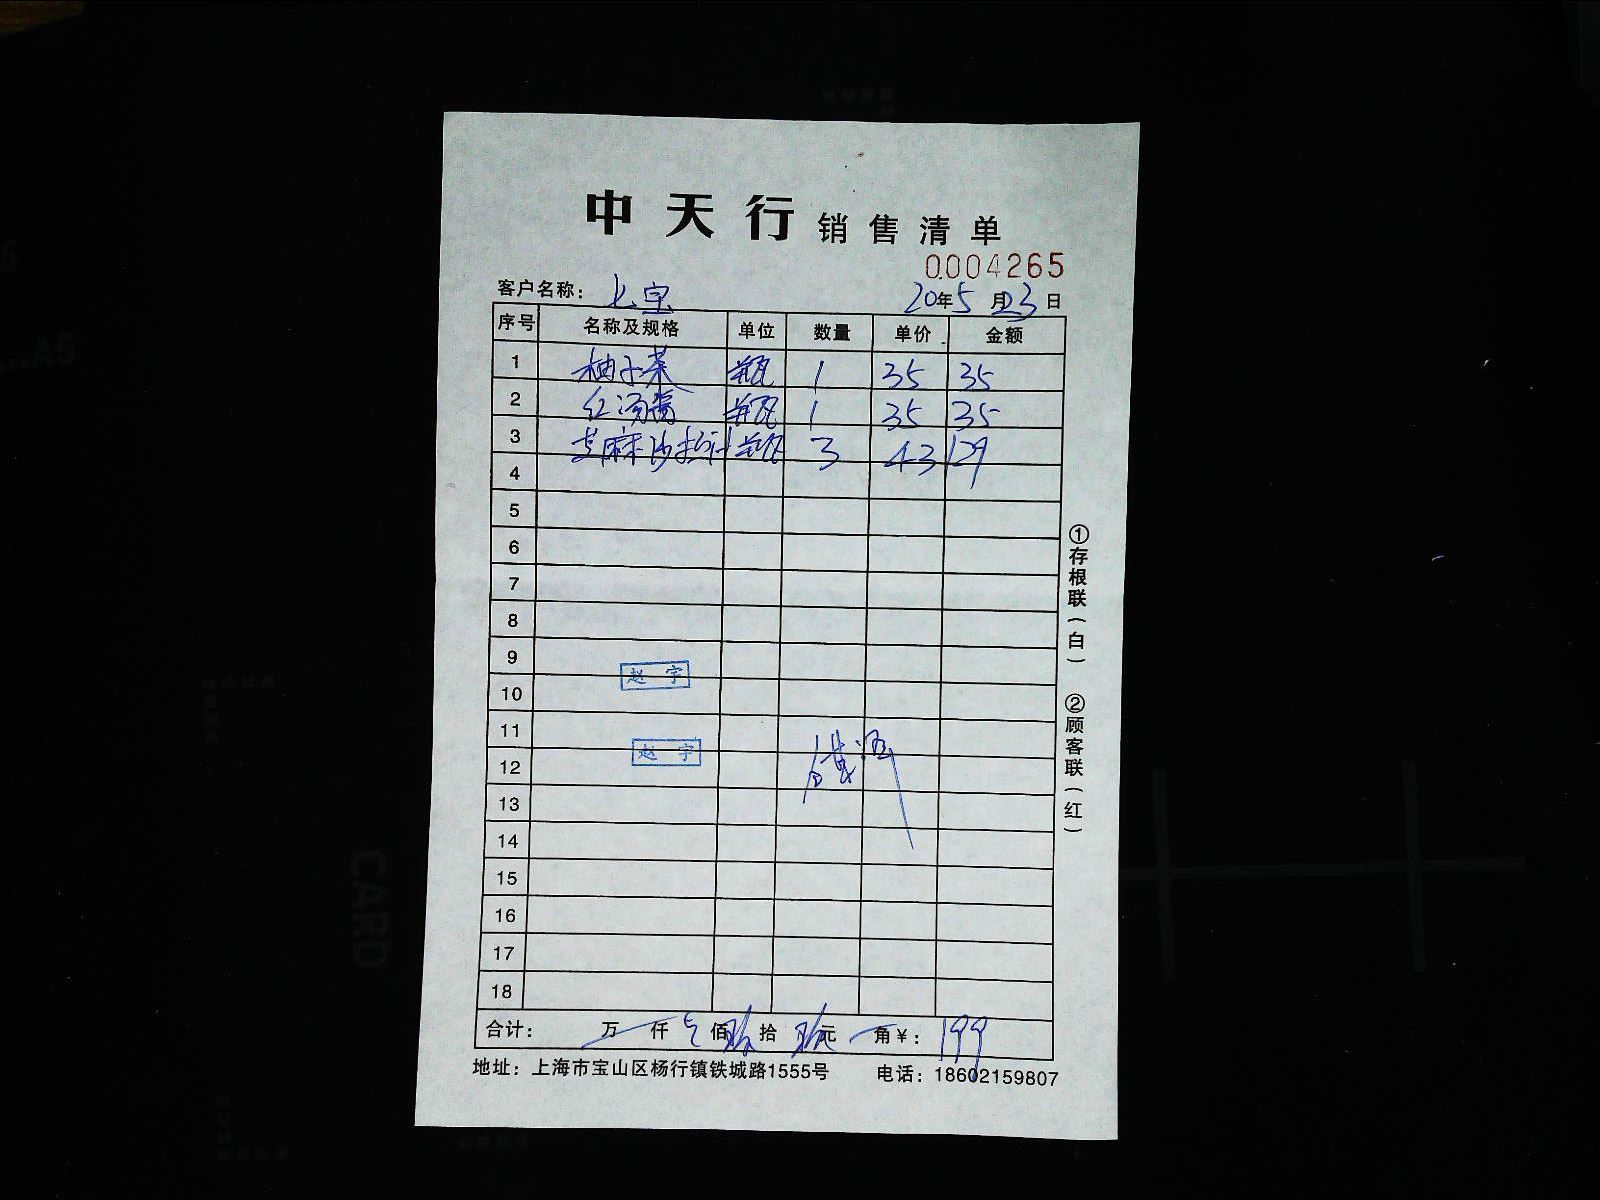 中天行 销售清单
0004265
客户名称： 七宝 20年5月23日
序号 名称及规格 单位 数量 单价 金额
1 柚子茶 瓶 1 35 35
2 瓶 1 35 35
3 芝麻沙拉汁 瓶 3 43 129
4
5
6
7
8
9
赵宇
10
11
赵宇
12
13
14
15
16
17
18
合计： 万 仟 佰 拾 元 角￥： 199
地址：上海市宝山区杨行镇铁城路1555号 电话：18602159807
①存根联（白） ②顾客联（红）
CARD
A5